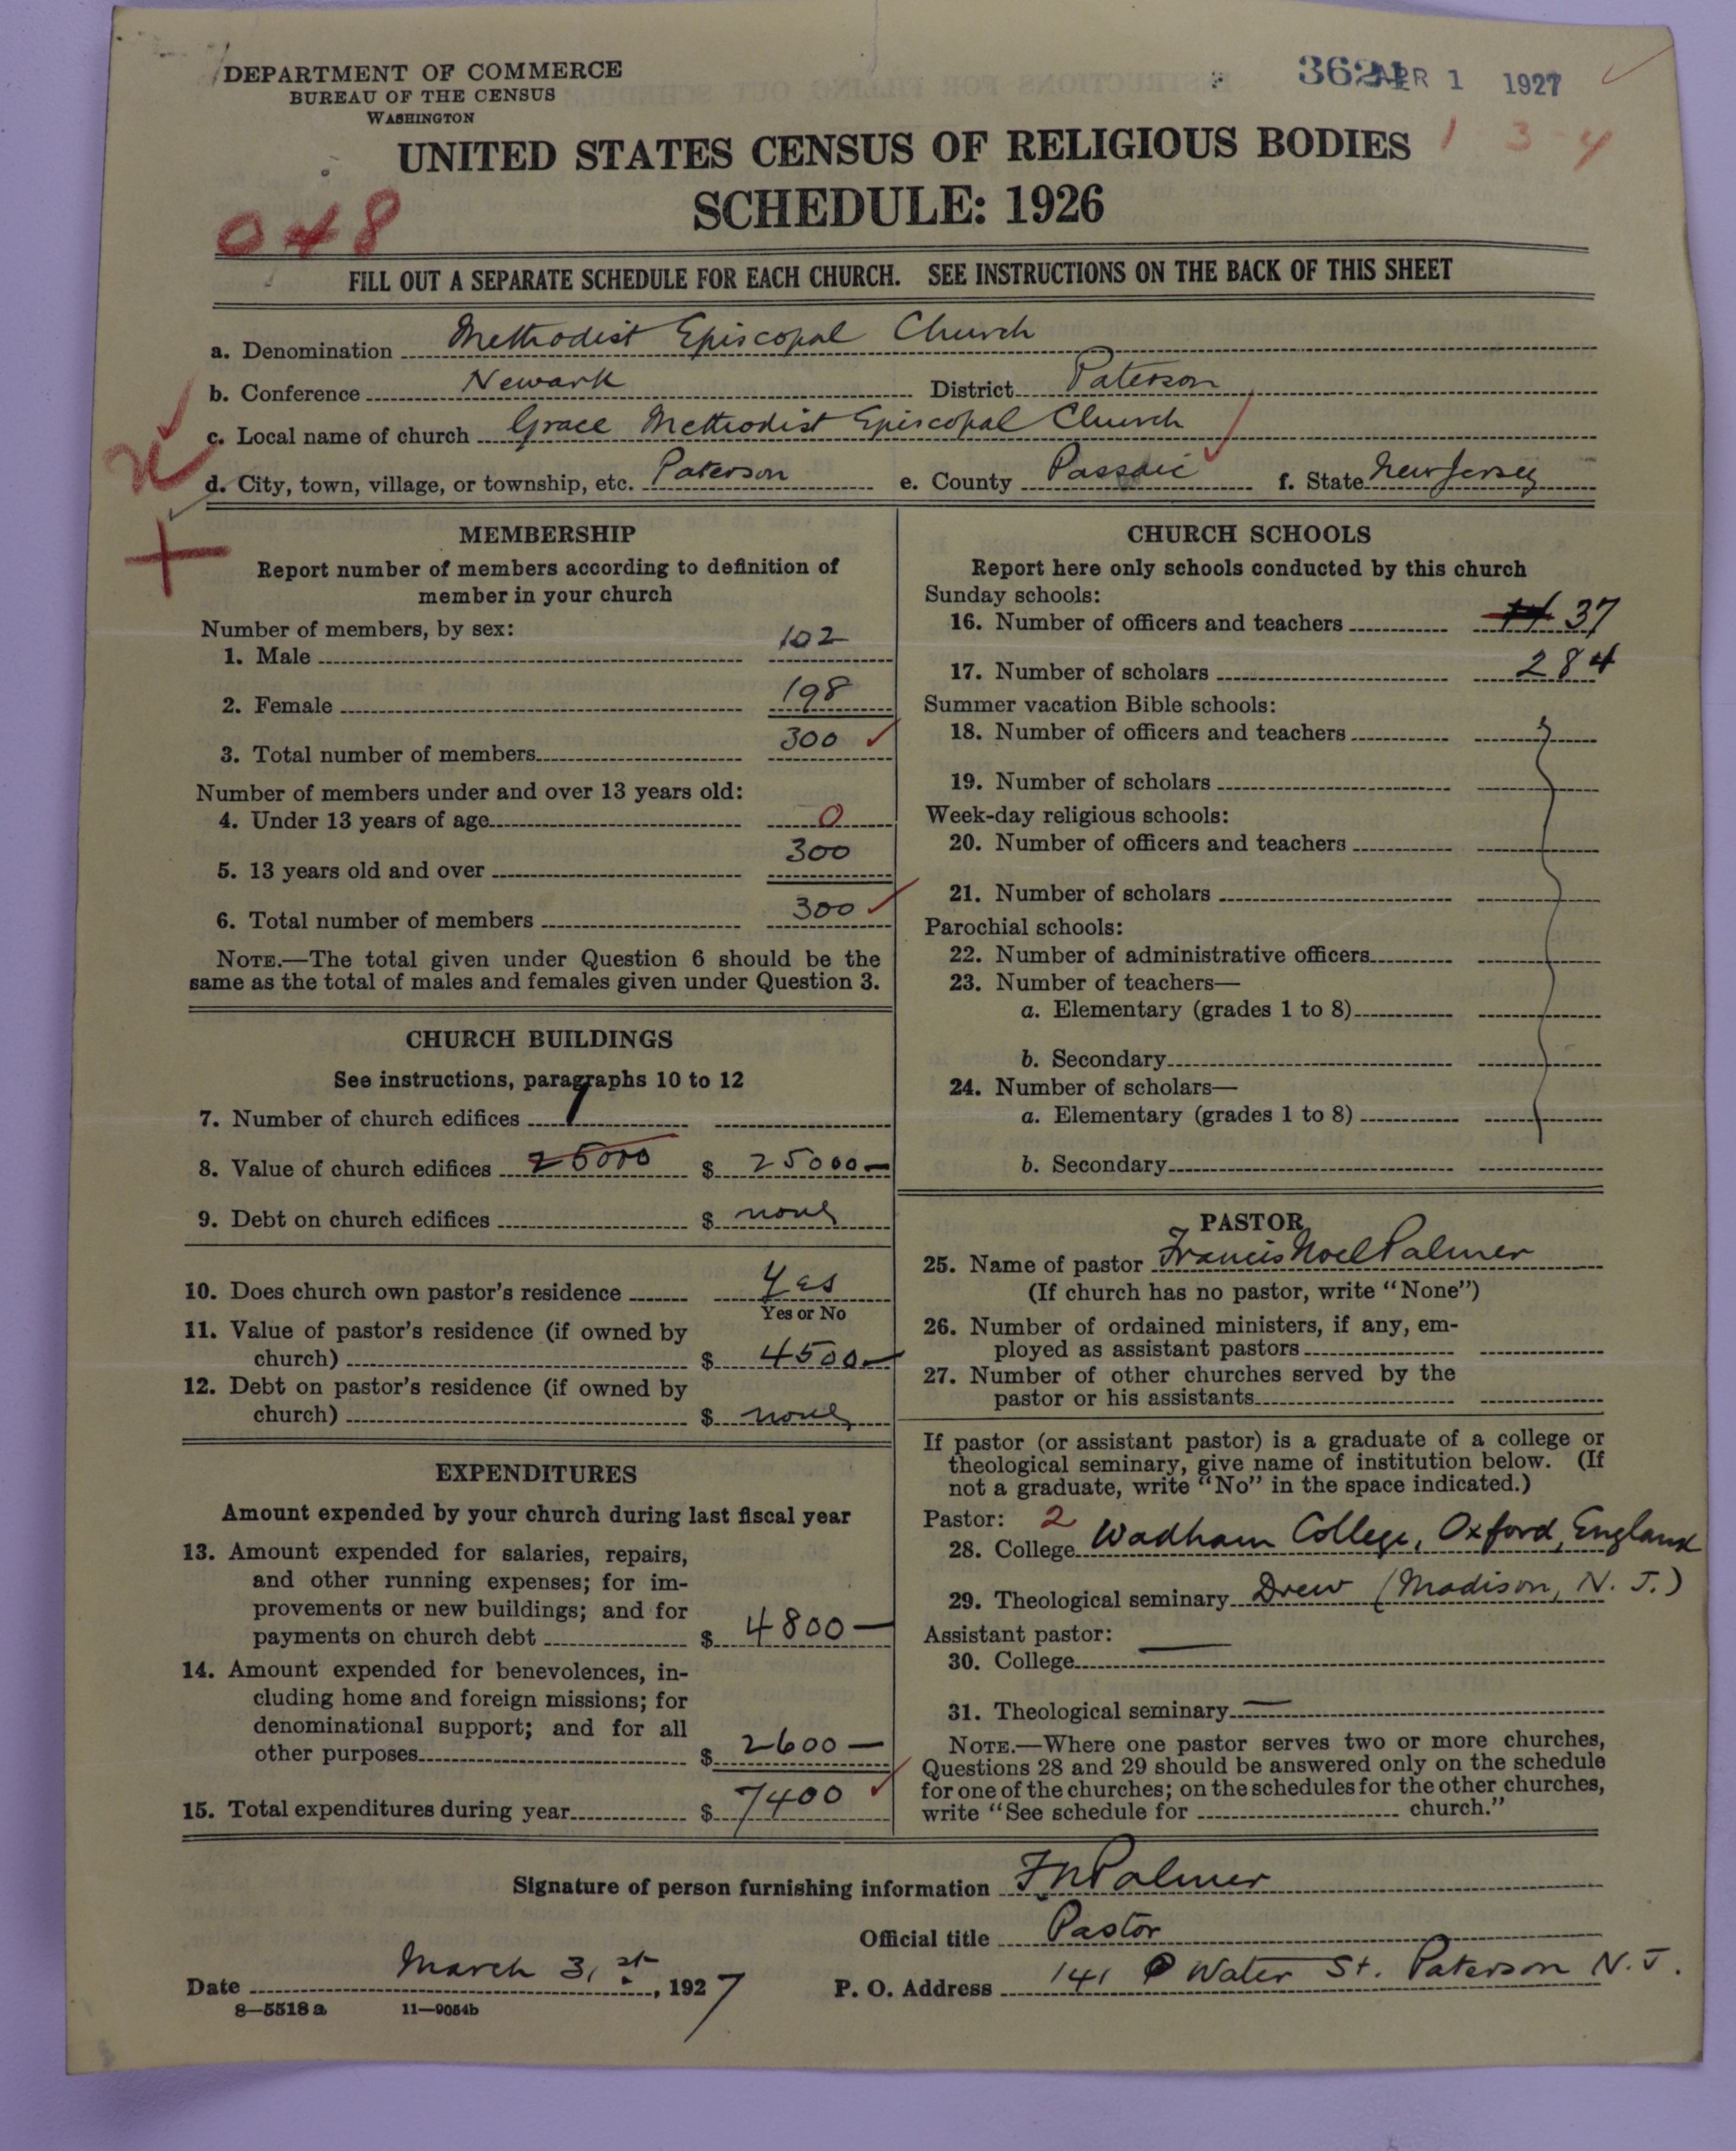 DEPARTMENT OF COMMERCE
BUREAU OF THE CENSUS
WASHINGTON
APR 1 1927
1 3-4
UNITED STATES CENSUS OF RELIGIOUS BODIES
SCHEDULE: 1926
048
FILL OUT A SEPARATE SCHEDULE FOR EACH CHURCH. SEE INSTRUCTIONS ON THE BACK OF THIS SHEET
a. Denomination Methodist Episcopal Church
b. Conference Newark District Paterson
c. Local name of church Grace Methodist Episcopal Church
d. City, town, village, or township, etc. Paterson e. County Passaic f. State New Jersey
MEMBERSHIP
Report number of members according to definition of
member in your church
Number of members, by sex:
1. Male 102
2. Female 198
3. Total number of members 300
Number of members under and over 13 years old:
4. Under 13 years of age 0
5. 13 years old and over 300
6. Total number of members 300
NOTE.—The total given under Question 6 should be the
same as the total of males and females given under Question 3.
CHURCH BUILDINGS
See instructions, paragraphs 10 to 12
7. Number of church edifices 1
8. Value of church edifices 25000 $ 25000—
9. Debt on church edifices $ none
10. Does church own pastor's residence Yes
Yes or No
11. Value of pastor's residence (if owned by
church) $ 4500—
12. Debt on pastor's residence (if owned by
church) $ none
EXPENDITURES
Amount expended by your church during last fiscal year
13. Amount expended for salaries, repairs,
and other running expenses; for im-
provements or new buildings; and for
payments on church debt $ 4800—
14. Amount expended for benevolences, in-
cluding home and foreign missions; for
denominational support; and for all
other purposes $ 2600—
15. Total expenditures during year $ 7400
CHURCH SCHOOLS
Report here only schools conducted by this church
Sunday schools:
16. Number of officers and teachers 37
17. Number of scholars 284
Summer vacation Bible schools:
18. Number of officers and teachers
19. Number of scholars
Week-day religious schools:
20. Number of officers and teachers
21. Number of scholars
Parochial schools:
22. Number of administrative officers
23. Number of teachers—
a. Elementary (grades 1 to 8)
b. Secondary
24. Number of scholars—
a. Elementary (grades 1 to 8)
b. Secondary
PASTOR
25. Name of pastor Francis Noel Palmer
(If church has no pastor, write "None")
26. Number of ordained ministers, if any, em-
ployed as assistant pastors
27. Number of other churches served by the
pastor or his assistants
If pastor (or assistant pastor) is a graduate of a college or
theological seminary, give name of institution below. (If
not a graduate, write "No" in the space indicated.)
Pastor: 2
28. College Wadham College, Oxford, England
29. Theological seminary Drew (Madison, N. J.)
Assistant pastor:
30. College —
31. Theological seminary —
NOTE.—Where one pastor serves two or more churches,
Questions 28 and 29 should be answered only on the schedule
for one of the churches; on the schedules for the other churches,
write "See schedule for church."
Signature of person furnishing information F N Palmer
Official title Pastor
Date March 31st, 1927 P. O. Address 141 Water St. Paterson N. J.
8—5518 a 11—9054b